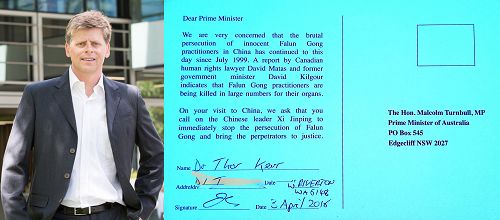 Dear Prime Minister
We are very concerned that the brutal
persecution of innocent Falun Gong
practitioners in China has continued to this
day since July 1999. A report by Canadian
human rights lawyer David Matas and former
government minister David Kilgour
indicates that Falun Gong practitioners are
being killed in large numbers for their organs.
On your visit to China, we ask that you
call on the Chinese leader Xi Jinping to
immediately stop the persecution of Falun
Gong and bring the perpetrators to justice.
Name Dr Thor Kerr
Address Date W. RIVERTON
WA 6148
Signature Date 2 April 2016
The Hon. Malcolm Turnbull, MP
Prime Minister of Australia
PO Box 545
Edgecliff NSW 2027